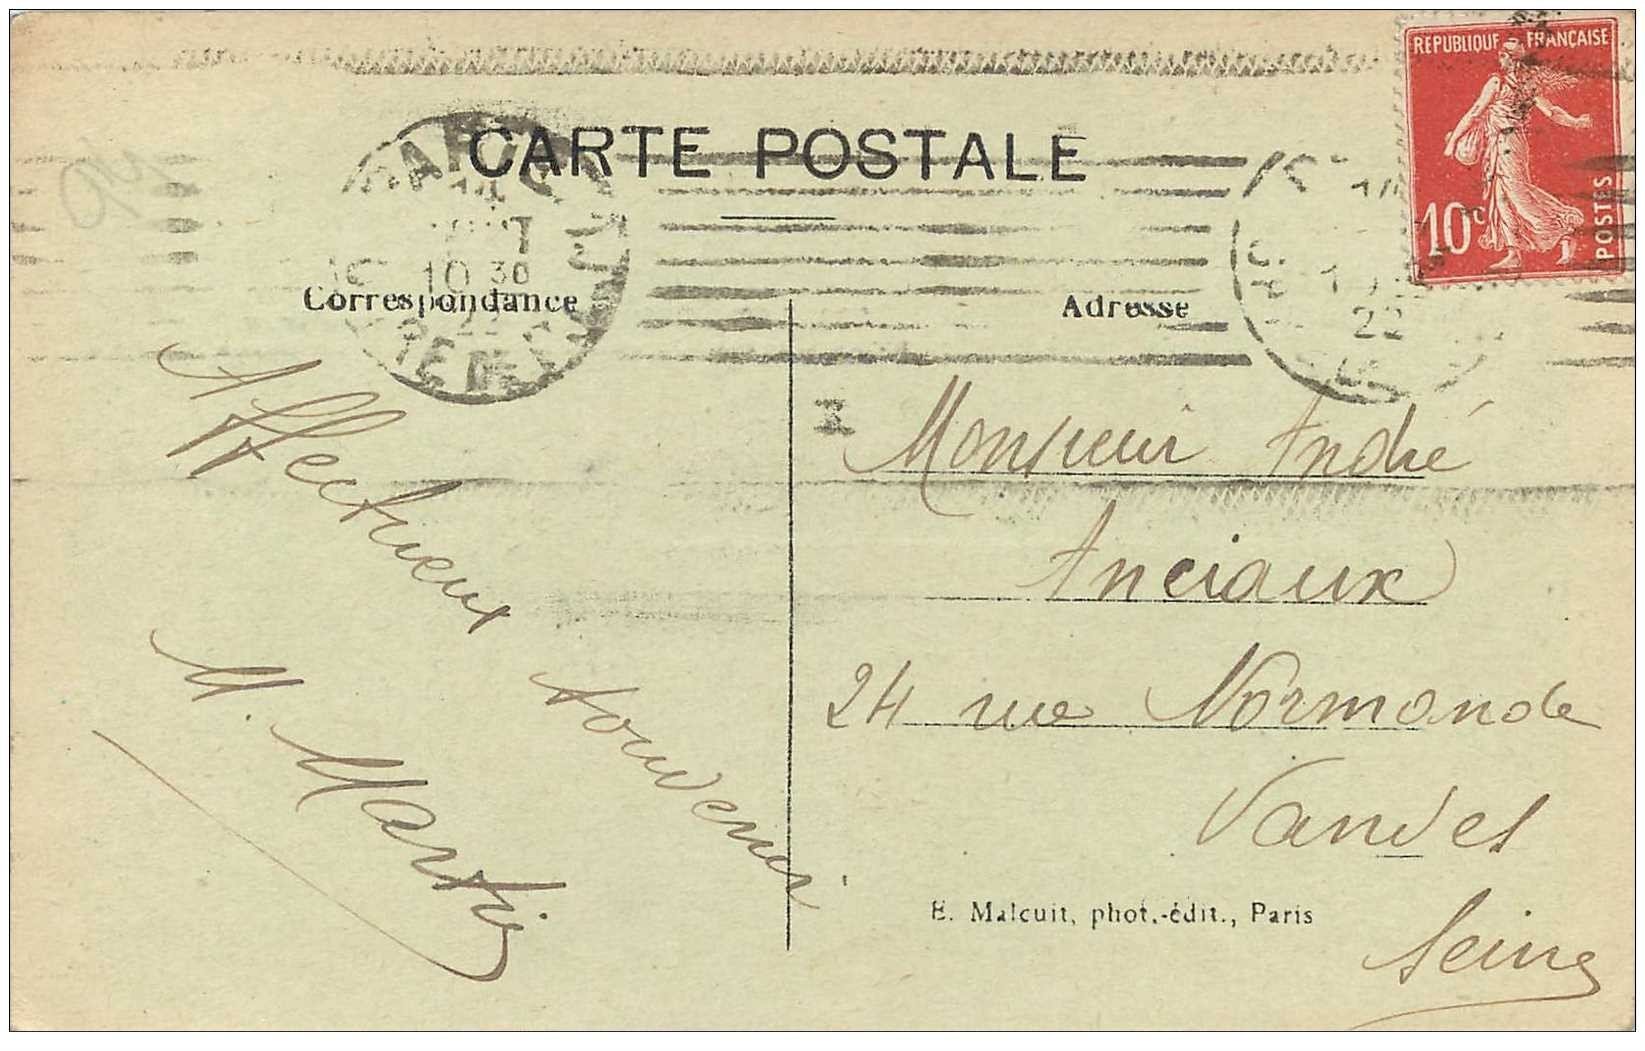 CARTE POSTALE
REPUBLIQUE FRANÇAISE
10c
POSTES
10 30
22
22
Correspondance
Adresse
Affectueux
souvenir
M. Martin
Monsieur André
Anciaux
24 rue Normande
Vanves
Seine
E. Malcuit, phot.-édit., Paris